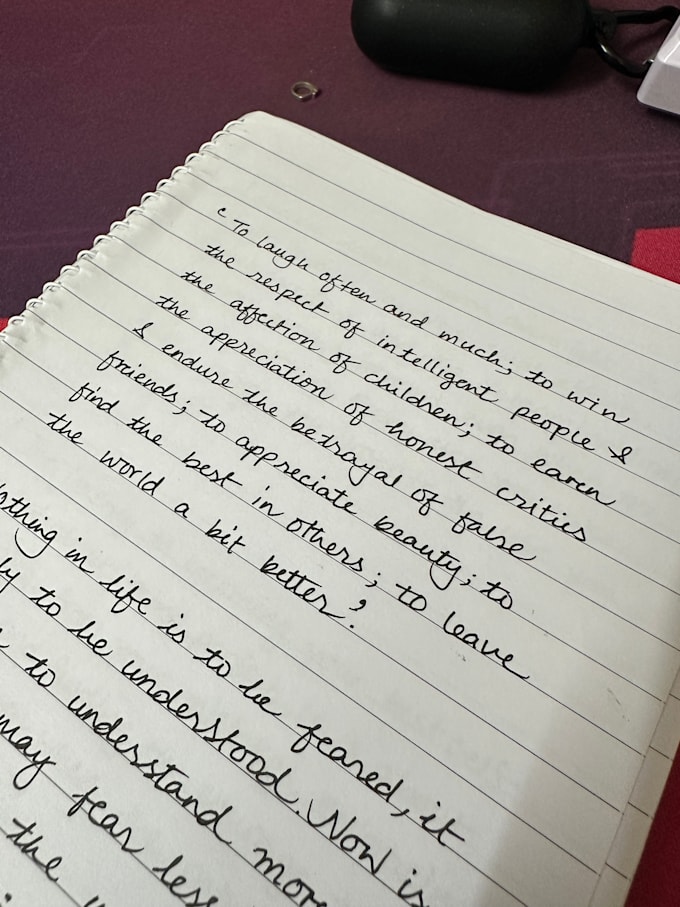 ‘ To laugh often and much; to win
the respect of intelligent people &
the affection of children; to earn
the appreciation of honest critics
& endure the betrayal of false
friends; to appreciate beauty; to
find the best in others; to leave
the world a bit better?
othing in life is to be feared, it
ly to be understood. Now is
to understand mor
may fear less
the